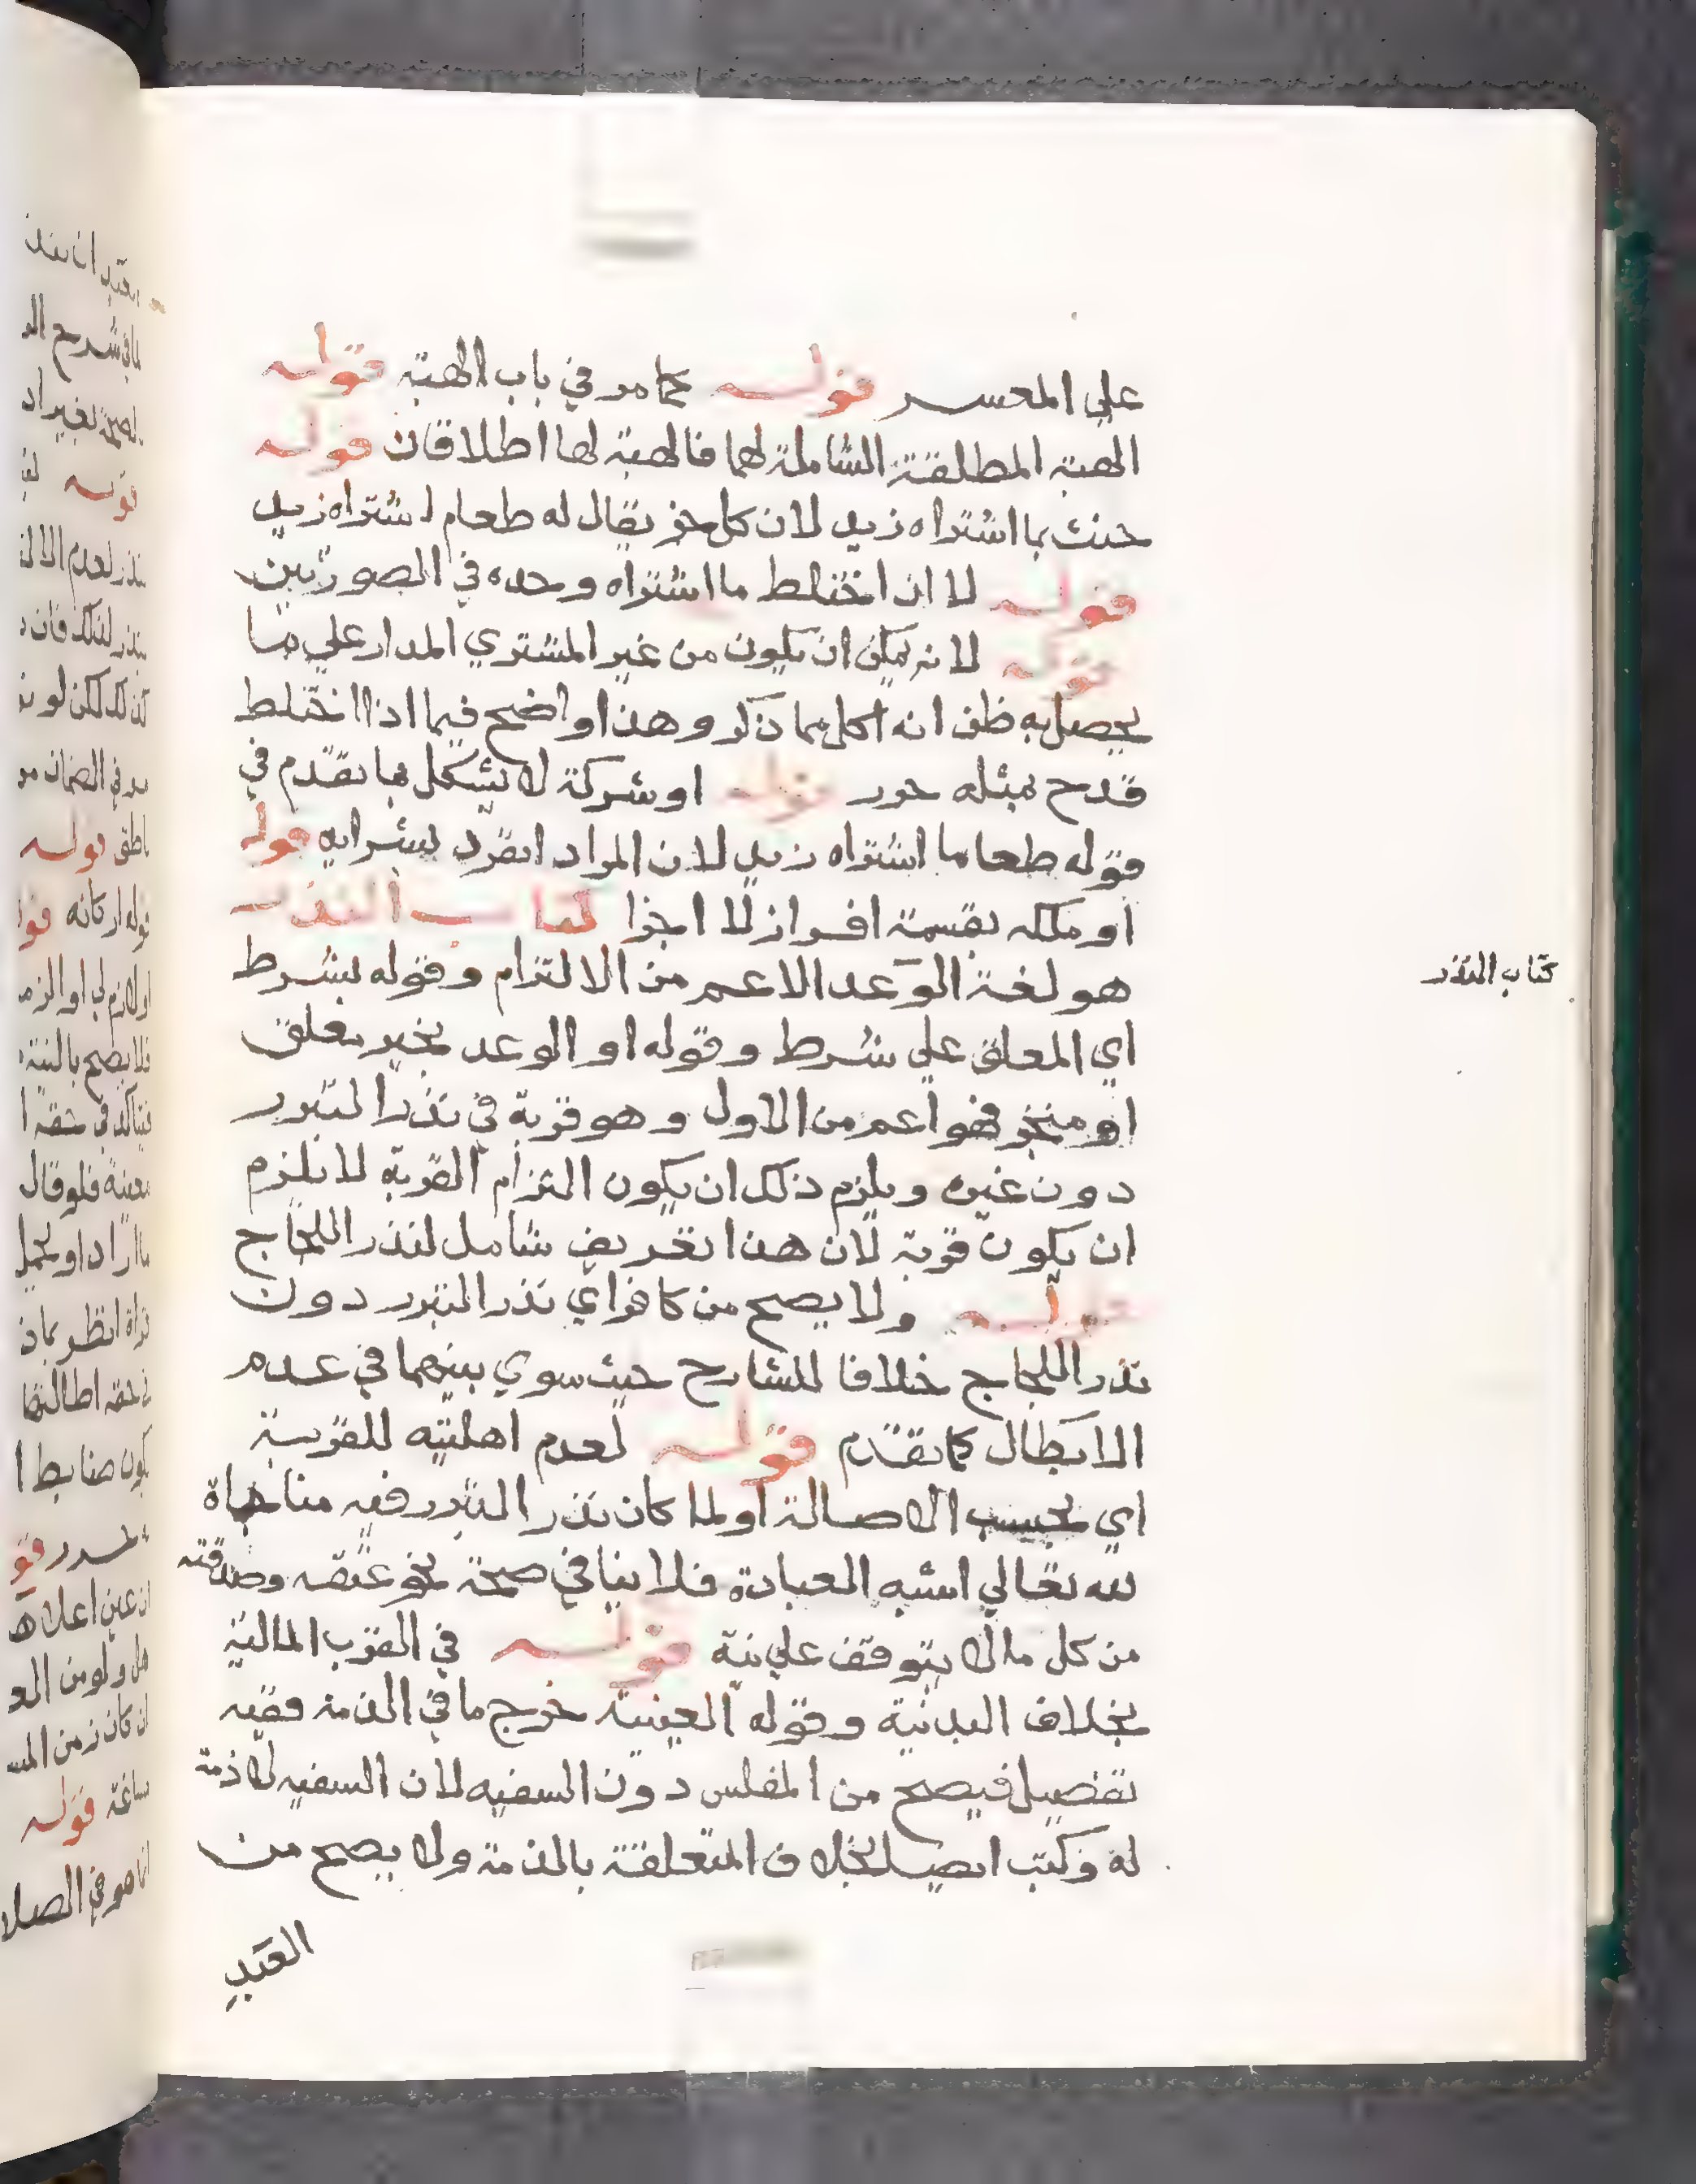 علي المعسر قوله كما مر في باب الهبة قوله
الهبة المطلقة الشاملة لهما فالهبة لها اطلاقان قوله
حنث بما اشتراه زيد لان كل جزء يقال له طعام اشتراه زيد
قوله لا ان اختلط ما اشتراه وحده في الصورتين
قوله لانه يمكن ان يكون من غير المشتري المدار علي ما
يحصل به ظن انه اكل مما ذكر وهذا واضح فيما اذا اختلط
قدح بمثله حرر قوله او شركة لا يشكل بما تقدم في
قوله طعاما اشتراه زيد لان المراد انفرد بشرايه قوله
او ملكه بقسمة افراز لا اجزا كتاب النذر
هو لغة الوعد الاعم من الالتزام وقوله بشرط
اي المعلق علي شرط وقوله او الوعد بخير معلق
او منجز فهو اعم من الاول وهو قربة في نذر التبرر
دون غيره ويلزم ذلك ان يكون التزام القربة لا يلزم
ان يكون قربة لان هذا تعريف شامل لنذر اللجاج
قوله ولا يصح من كافر اي نذر التبرر دون
نذر اللجاج خلافا للشارح حيث سوي بينهما في عدم
الابطال كما تقدم قوله لعدم اهليته للقربة
اي بحسب الاصالة او لما كان نذر التبرر فيه مناجاة
لله تعالي اشبه العبادة فلا ينافي صحة نحو عتقه وصدقته
من كل ما لا يتوقف علي نية قوله في القرب المالية
بخلاف البدنية وقوله العينية خرج ما في الذمة ففيه
تفصيل فيصح من المفلس دون السفيه لان السفيه لا ذمة
له وكتب ايضا بخلاف المتعلقة بالذمة ولا يصح من
العبد
كتاب النذر